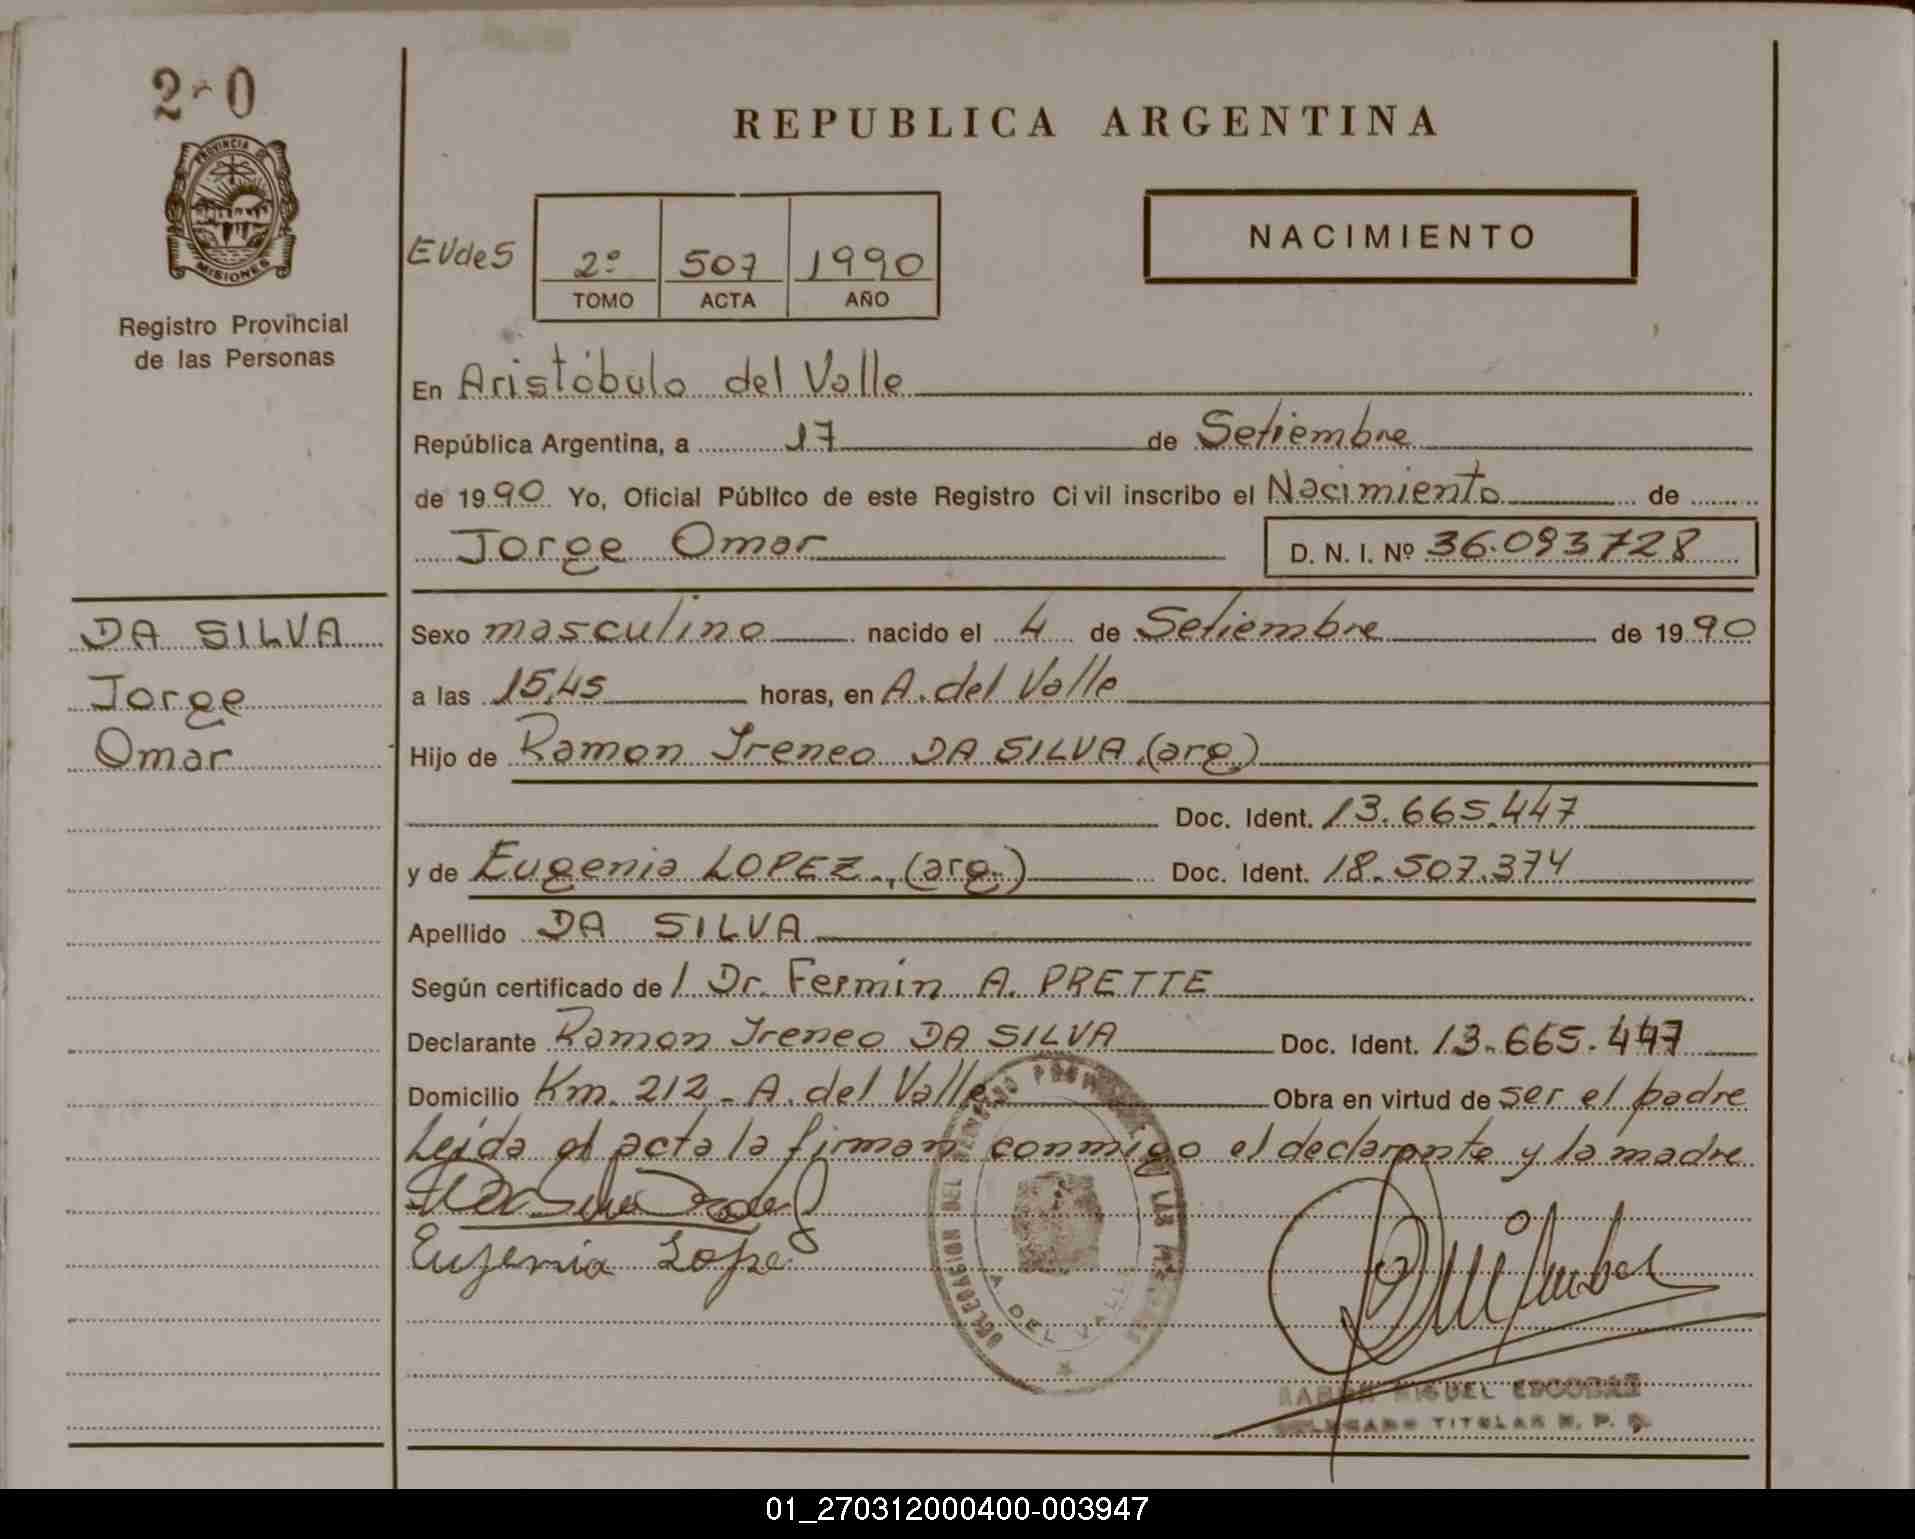 2 0
PROVINCIA DE
MISIONES
Registro Provincial
de las Personas
REPUBLICA ARGENTINA
EVdeS
2º 507 1990
TOMO ACTA AÑO
NACIMIENTO
En Aristóbulo del Valle
República Argentina, a 17 de Setiembre
de 1990 Yo, Oficial Público de este Registro Civil inscribo el Nacimiento de
Jorge Omar D. N. I. Nº 36.093728
DA SILVA
Jorge
Omar
Sexo masculino nacido el 4 de Setiembre de 1990
a las 15,45 horas, en A. del Valle
Hijo de Ramon Ireneo DA SILVA,(arg)
Doc. Ident. 13.665.447
y de Eugenia LOPEZ.,(arg.) Doc. Ident. 18.507.374
Apellido DA SILVA
Según certificado de l Dr. Fermin A. PRETTE
Declarante Ramon Ireneo DA SILVA Doc. Ident. 13.665.447
Domicilio Km. 212 - A. del Valle Obra en virtud de ser el padre
Leida el acta la firman conmigo el declarante y la madre
Eugenia Lope
DELEGACION DEL REGISTRO PROVINCIAL DE LAS
A DEL VALLE
MIGUEL ESCOBAR
DELEGADO TITULAR R. P. P.
01_270312000400-003947